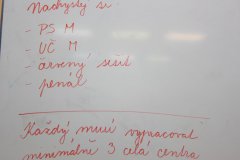 Nachystej si:
- PS M
- UČ M
- červený sešit
- penál
Každý musí vypracovat
minimálně 3 celá centra